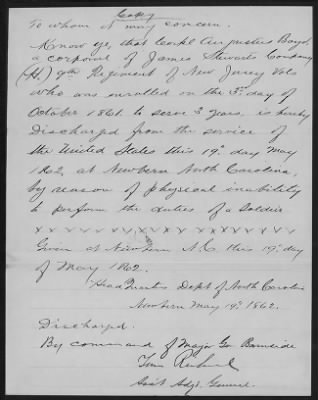 Copy
To whom it may concern.
Know ye, that Corpl Augustus Boyd,
a corporal of James Stewarts Company
(H) 9th Regiment of New Jersey Vols
who was enrolled on the 3rd day of
October 1861 to serve 3 years, is hereby
Discharged from the service of
the United States this 19th day May
1862, at Newbern North Carolina,
by reason of physical inability
to perform the duties of a Soldier
x x x x x x x x x x x x x x x x x x x
Given at Newbern N.C. this 19th day
of May 1862.
Head Quarters Dept of North Carolina
Newbern May 19th 1862.
Discharged.
By command of Major Gen Burnside
Asst Adgt. General.